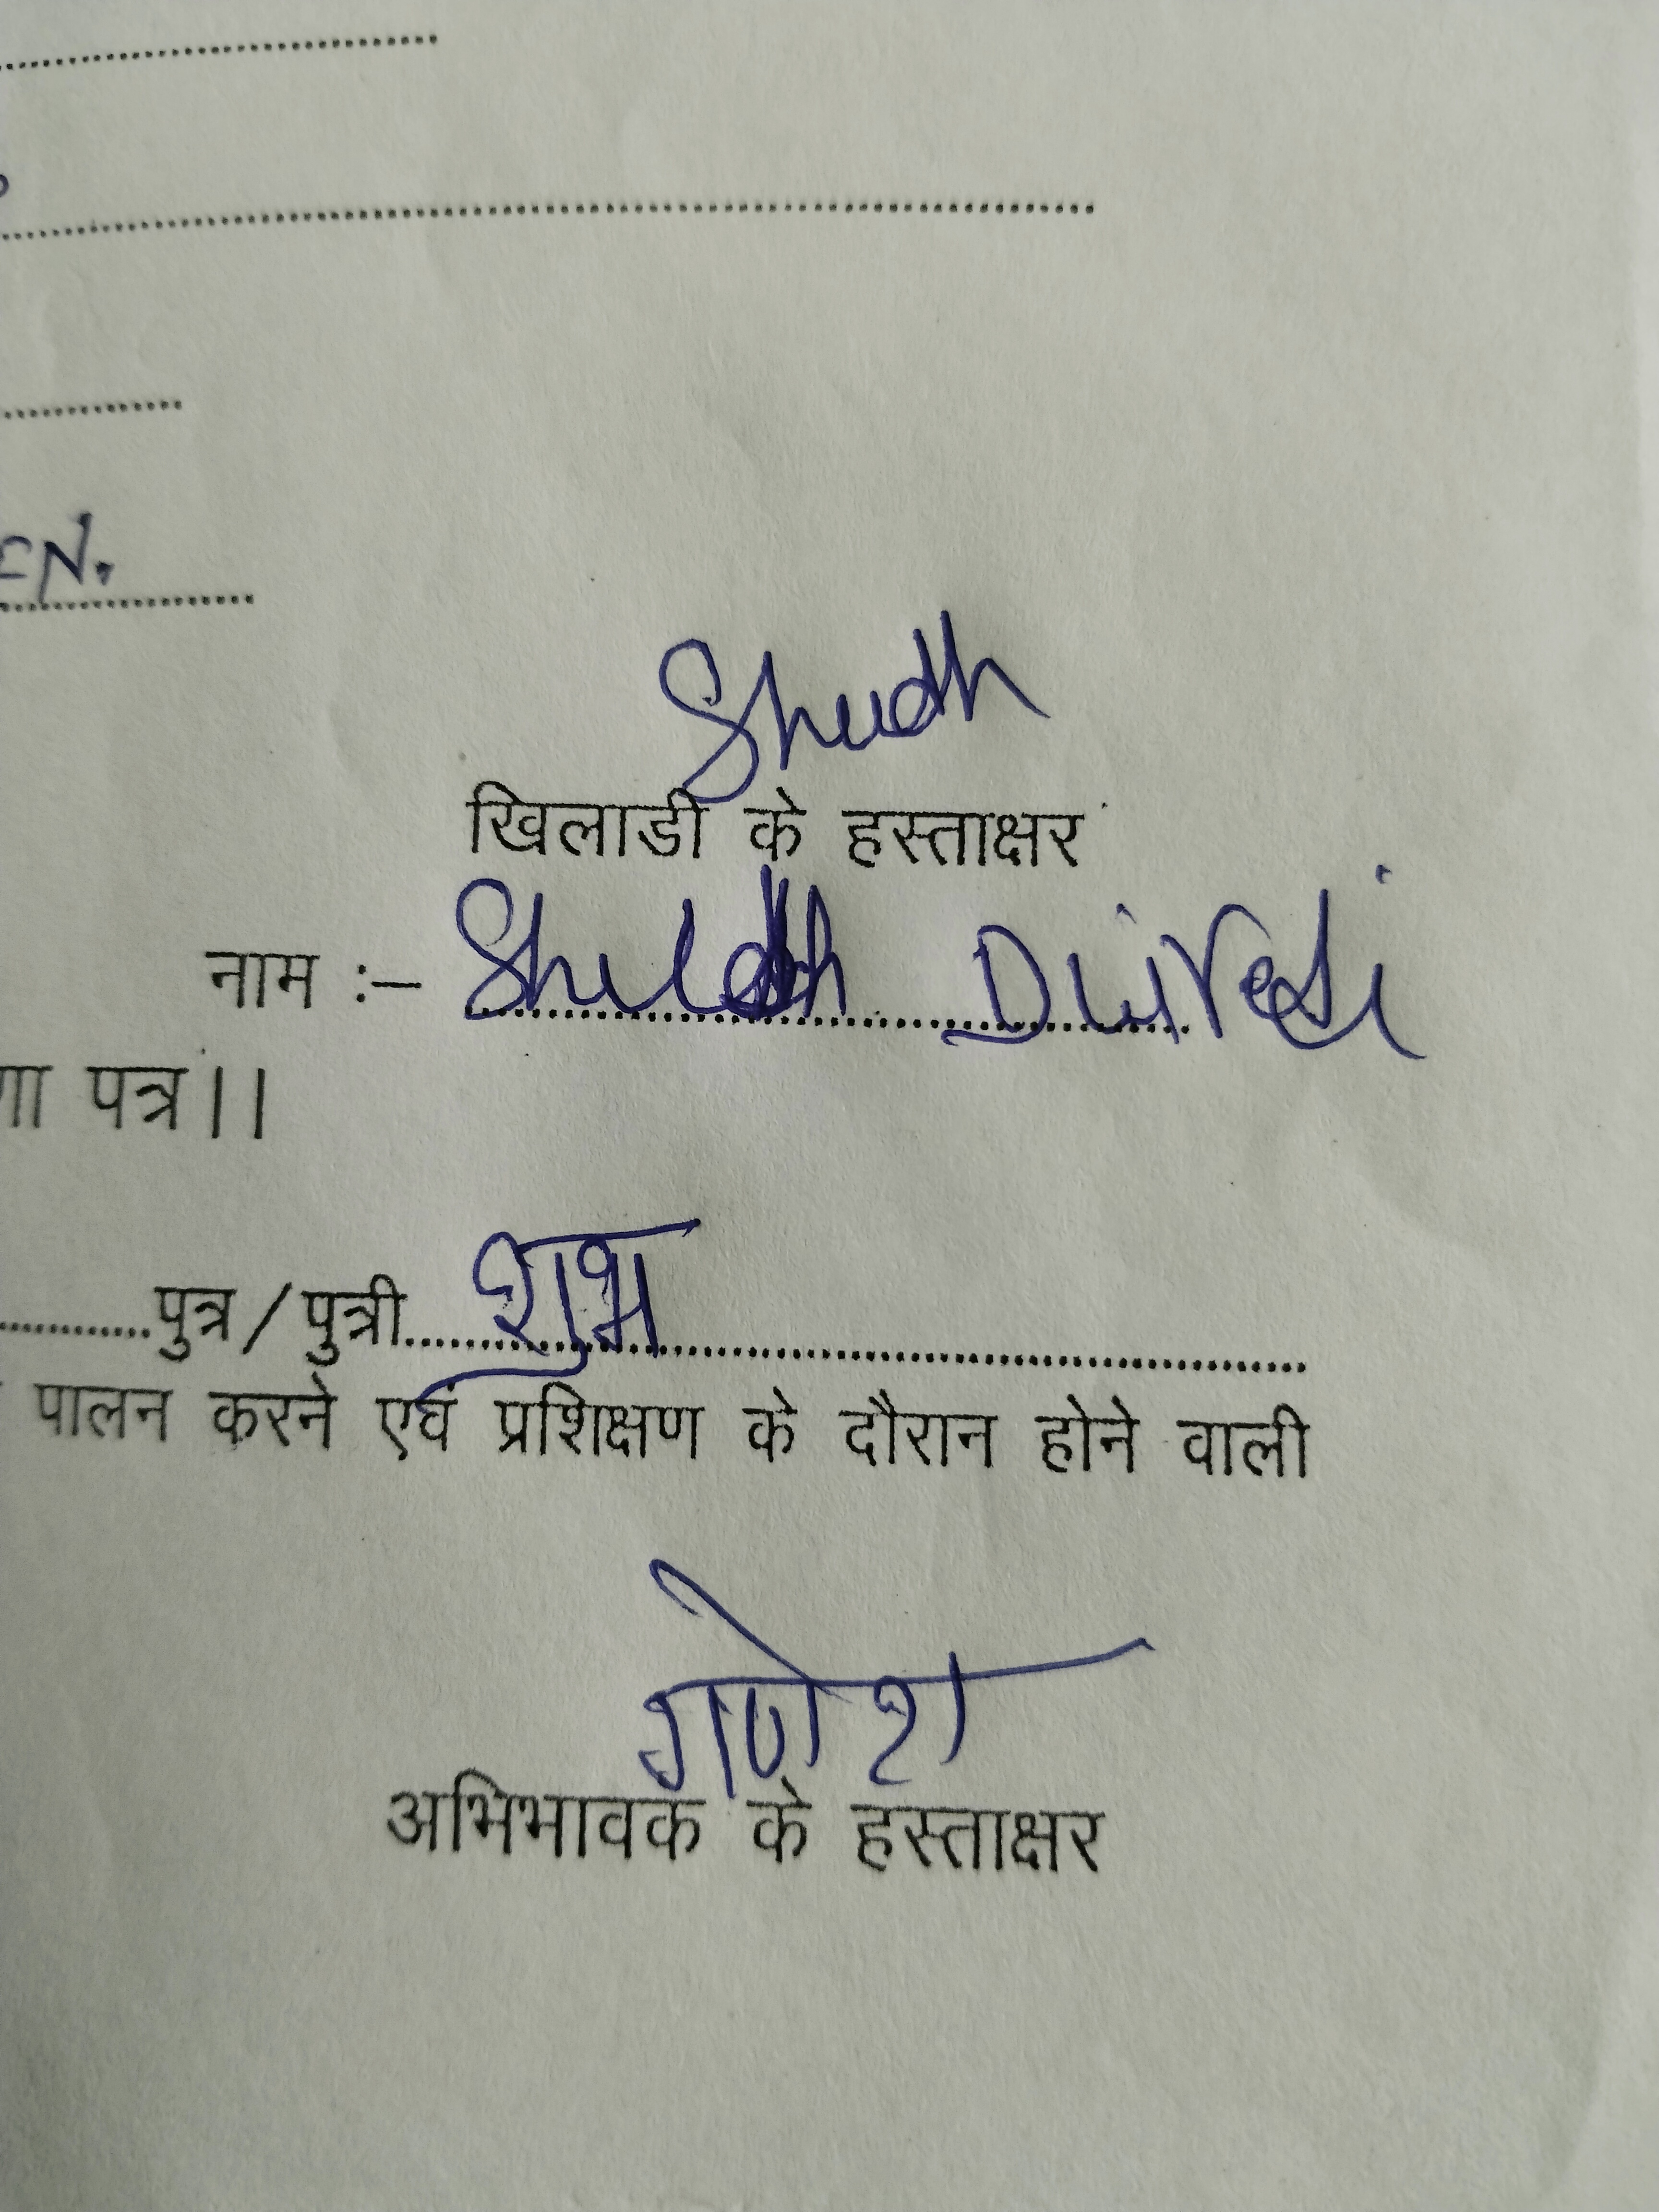 EN.
Shudh
खिलाडी के हस्ताक्षर
नाम :- Shudh Dwivedi
पत्र ||
पुत्र / पुत्री शुभ
पालन करने एवं प्रशिक्षण के दौरान होने वाली
गणेश
अभिभावक के हस्ताक्षर